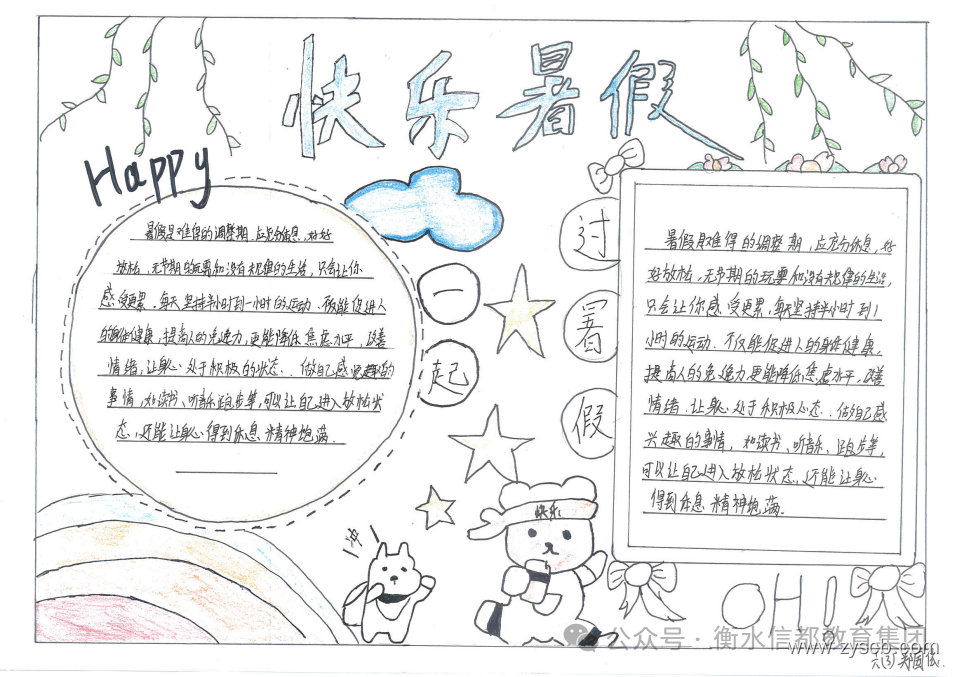 快乐暑假
Happy
暑假是难得的调整期，应充分休息，好好
放松，无节期的玩耍和没有规律的生活，只会让你
感受更累，每天坚持半小时到一小时的运动、不仅能促进人
的身体健康，提高人的免疫力，更能降低焦虑水平，改善
情绪，让身心处于积极的状态、做自己感兴趣的
事情，如读书、听音乐、跑步等，可以让自己进入放松状
态、还能让身心得到休息精神饱满.
一起
过暑假
暑假是难得的调整期，应充分休息，好
好放松，无节期的玩耍和没有规律的生活，
只会让你感受更累，每天坚持半小时到1
小时的运动、不仅能促进人的身体健康，
提高人的免疫力更能降低焦虑水平，改善
情绪、让身心处于积极心态、做自己感
兴趣的事情，如读书、听音乐、跑步等，
可以让自己进入放松状态、还能让身心
得到休息精神饱满.
快乐
冲
OH!
公众号·衡水信都教育集团
www.zyscb.com
六(3)